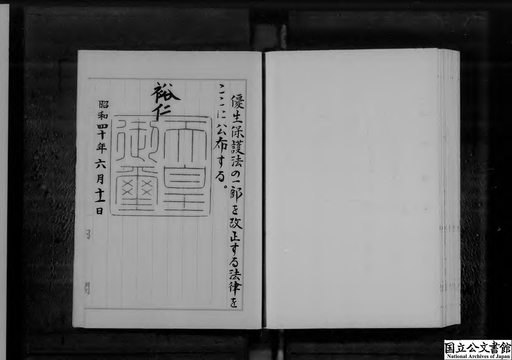 優生保護法の一部を改正する法律を
ここに公布する。
裕仁
天皇
御璽
昭和四十年六月十一日
国立公文書館
National Archives of Japan